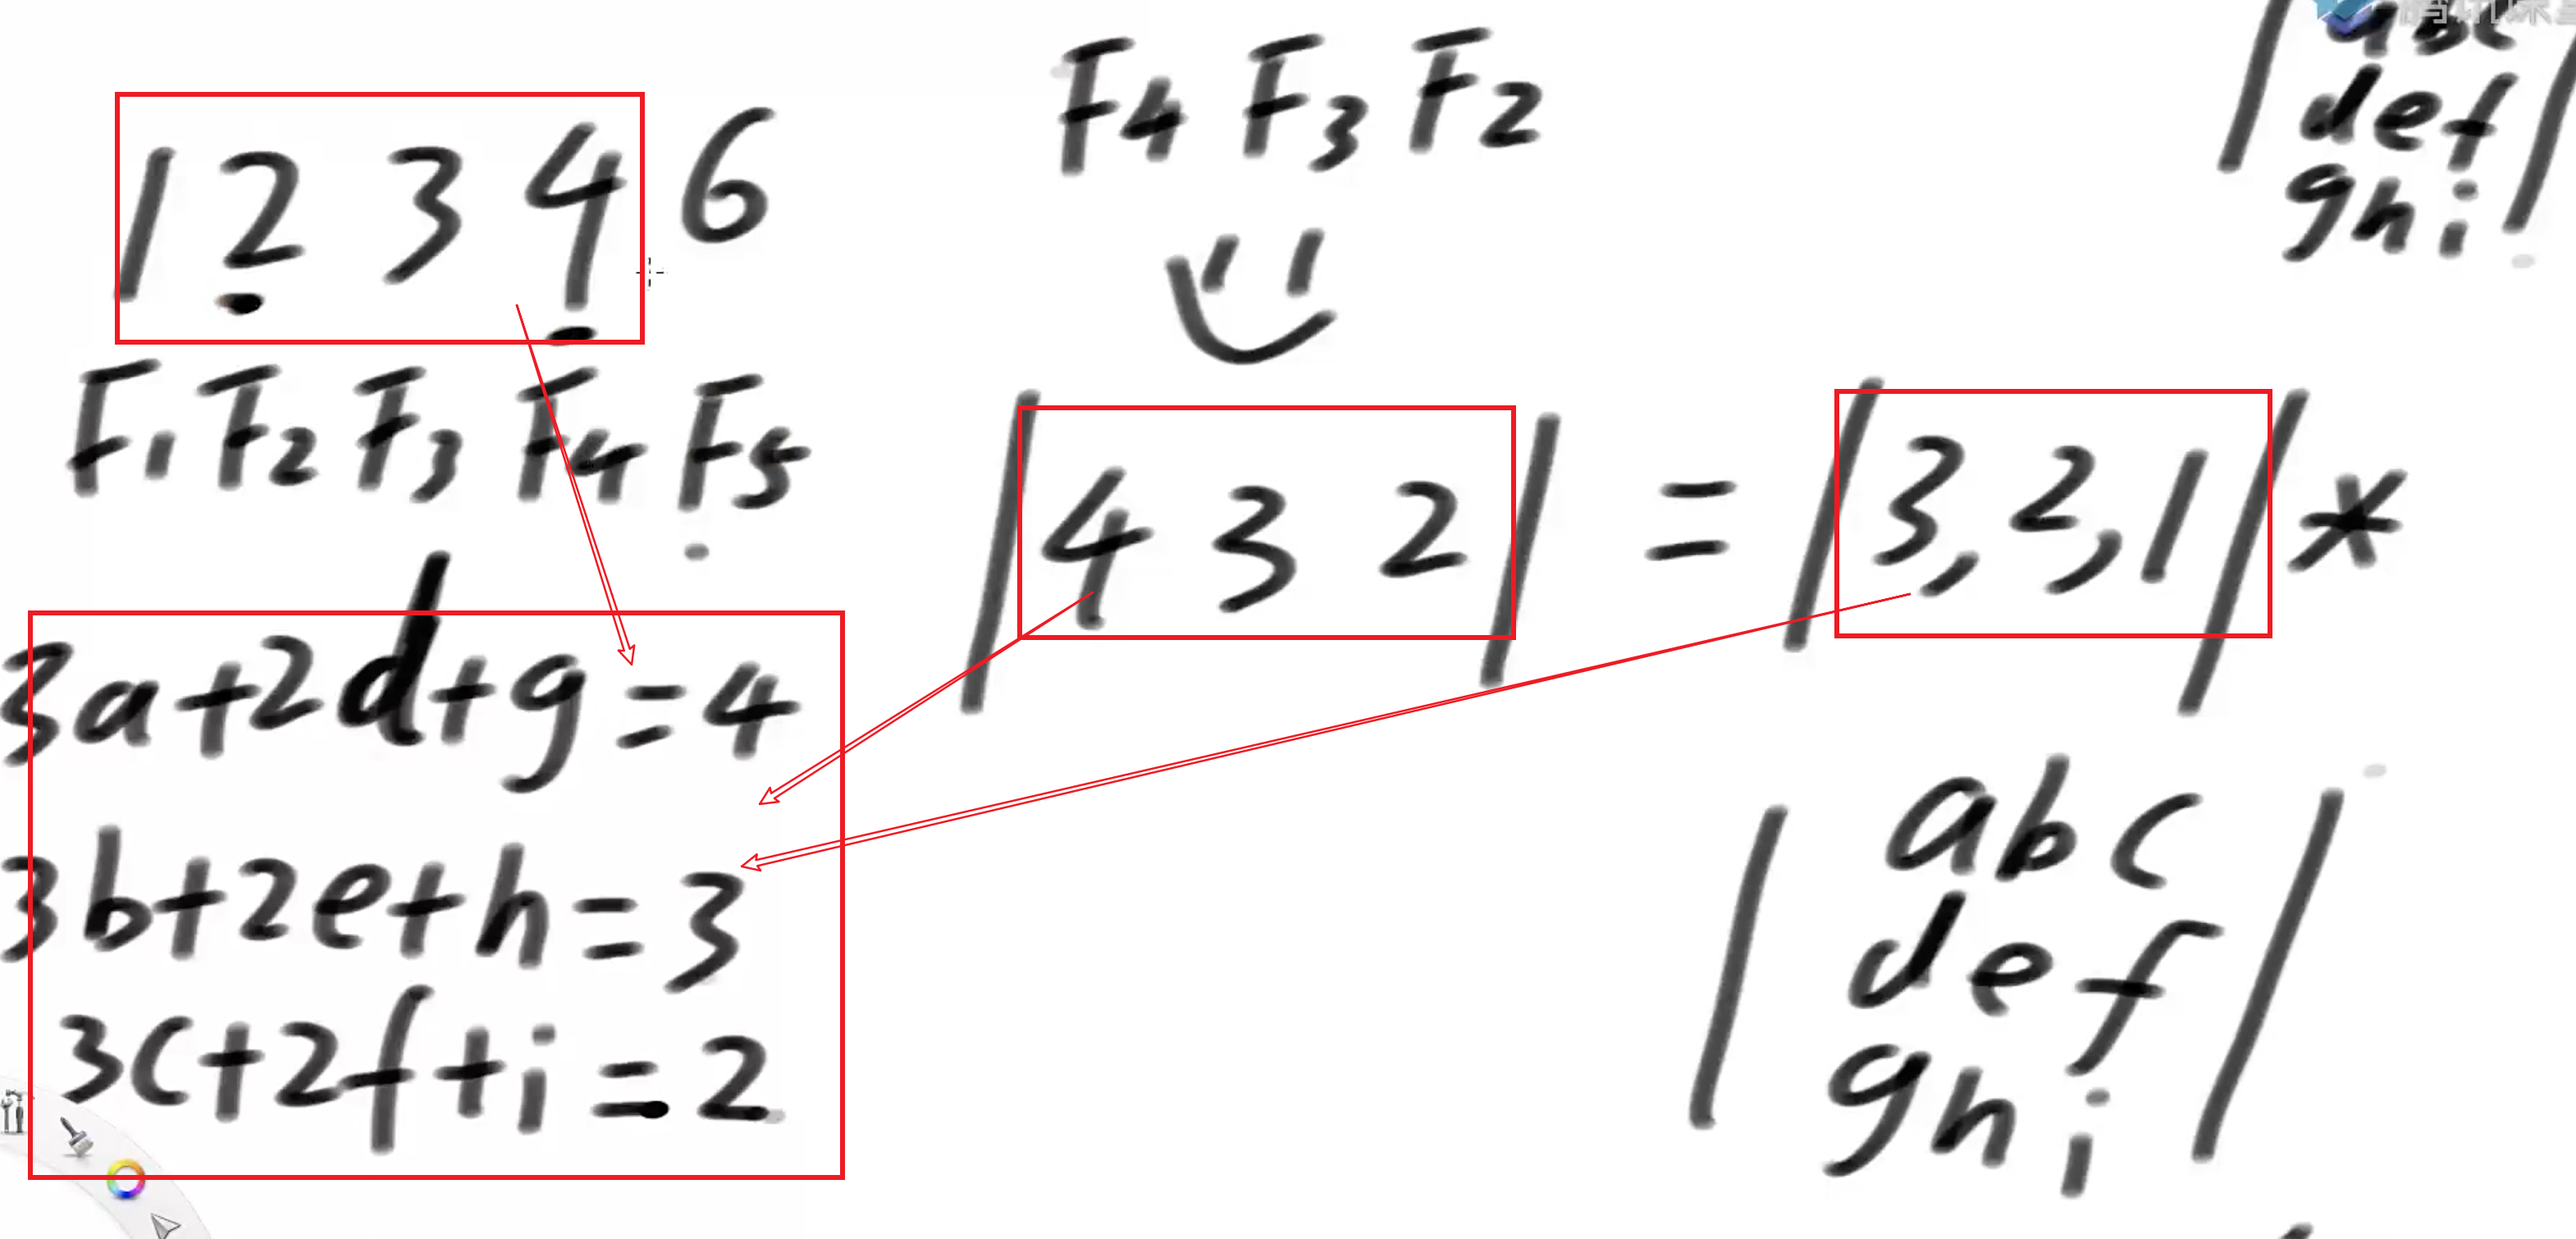 1 2 3 4 6
F1 F2 F3 F4 F5
3a+2d+g=4
3b+2e+h=3
3c+2f+i=2
F4 F3 F2
|4 3 2| = |3,2,1| *
|a b c
d e f
g h i|
|abc
def
ghi|